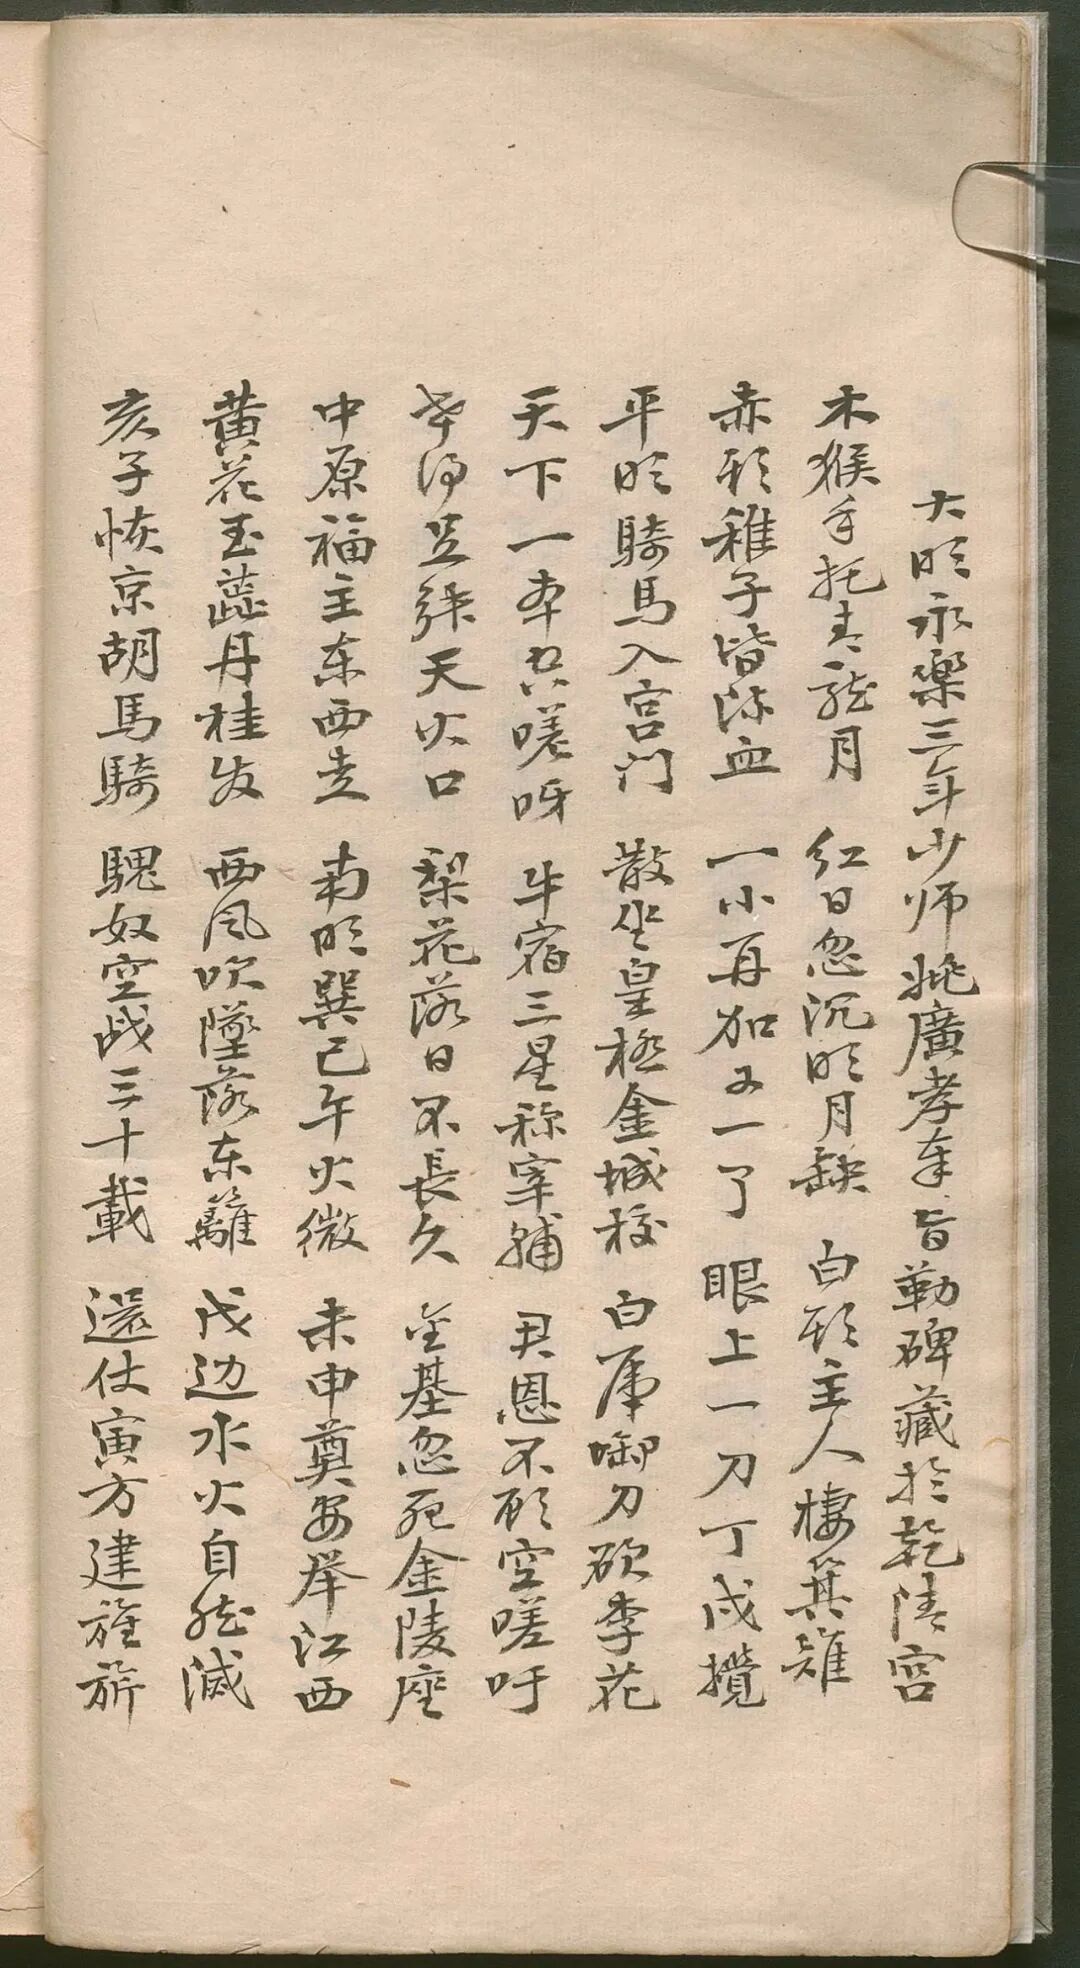 大明永樂三年少师姚廣孝奉旨勒碑藏於乾清宮
木猴手托青龍月 红日忽沉明月缺 白頭主人棲箕雉
赤頭稚子皆流血 一小再加又一了 眼上一刀丁戊攪
平明騎馬入宫门 散坐皇極金城校 白虎啣刀砍李花
天下一本共嗟呀 牛宿三星称宰補 君恩不顧空嗟吁
天火口 梨花落日不長久 基忽死金陵座
中原福主东西走 南明巽己午火微 未申奠安举江西
黄花玉蕋丹桂发 西风吹墜落东籬 戊边水火自然滅
亥子恢京胡馬騎 騩奴空战三十載 還仗寅方建旌旂